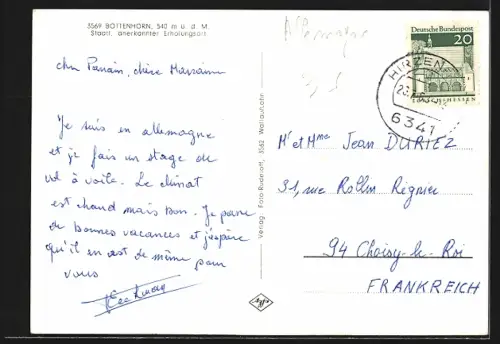 3569 BOTTENHORN, 540 m ü. d. M.
Staatl. anerkannter Erholungsort
Allemagne
cher Parrain, chère Marraine
Je suis en allemagne
et je fais un stage de
vol à voile. Le climat
est chaud mais Bon. Je passe
de bonnes vacances et j'espère
qu'il en est de même pour
vous
Verlag Foto Ruderoff, 3562 Wallau/Lahn
Deutsche Bundespost
20
HIRZEN
6341
Mr et Mme Jean DURIEZ
31, rue Rollin Régnier
94 Choisy-le-Roi
FRANKREICH